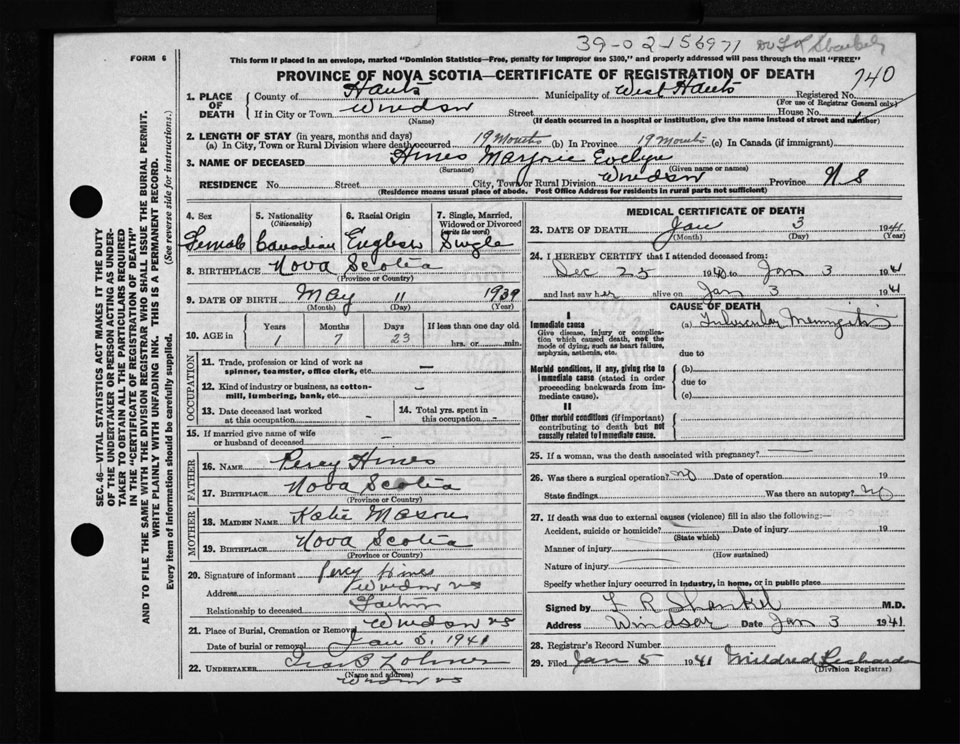 39-02-156971 Dr L R Shankel
FORM 6
This form if placed in an envelope, marked "Dominion Statistics—Free, penalty for improper use $300," and properly addressed will pass through the mail "FREE"
PROVINCE OF NOVA SCOTIA—CERTIFICATE OF REGISTRATION OF DEATH
740
1. PLACE OF DEATH
County of Hants Municipality of West Hants Registered No.
(For use of Registrar General only)
If in City or Town Windsor Street House No.
(Name) (If death occurred in a hospital or institution, give the name instead of street and number)
2. LENGTH OF STAY (in years, months and days)
(a) In City, Town or Rural Division where death occurred 19 Months (b) In Province 19 Months (c) In Canada (if immigrant)
3. NAME OF DECEASED Hines Marjorie Evelyn
(Surname) (Given name or names)
RESIDENCE No. Street City, Town or Rural Division Windsor Province N S
(Residence means usual place of abode. Post Office Address for residents in rural parts not sufficient)
4. Sex Female
5. Nationality (Citizenship) Canadian
6. Racial Origin English
7. Single, Married, Widowed or Divorced (write the word) Single
8. BIRTHPLACE Nova Scotia
(Province or Country)
9. DATE OF BIRTH May 11 1939
(Month) (Day) (Year)
10. AGE in Years Months Days If less than one day old
1 7 23 hrs. or min.
OCCUPATION
11. Trade, profession or kind of work as spinner, teamster, office clerk, etc. –
12. Kind of industry or business, as cotton-mill, lumbering, bank, etc. –
13. Date deceased last worked at this occupation –
14. Total yrs. spent in this occupation –
15. If married give name of wife or husband of deceased –
FATHER
16. NAME Percy Hines
17. BIRTHPLACE Nova Scotia
(Province or Country)
MOTHER
18. MAIDEN NAME Katie Mason
19. BIRTHPLACE Nova Scotia
(Province or Country)
20. Signature of informant Percy Hines
Address Windsor NS
Relationship to deceased Father
21. Place of Burial, Cremation or Removal Windsor NS
Date of burial or removal Jan 5, 1941
22. UNDERTAKER
(Name and address)
Windsor NS
MEDICAL CERTIFICATE OF DEATH
23. DATE OF DEATH Jan 3 1941
(Month) (Day) (Year)
24. I HEREBY CERTIFY that I attended deceased from:
Dec 25 1940 to Jan 3 1941
and last saw her alive on Jan 3 1941
CAUSE OF DEATH
I
Immediate cause (a) Tubercular Meningitis
Give disease, injury or complication which caused death, not the mode of dying, such as heart failure, asphyxia, asthenia, etc.
due to
Morbid conditions, if any, giving rise to immediate cause (stated in order proceeding backwards from immediate cause).
(b)
due to
(c)
II
Other morbid conditions (if important) contributing to death but not causally related to immediate cause.
25. If a woman, was the death associated with pregnancy?
26. Was there a surgical operation? No Date of operation 19
State findings Was there an autopsy? No
27. If death was due to external causes (violence) fill in also the following:—
Accident, suicide or homicide? Date of injury 19
(State which)
Manner of injury
(How sustained)
Nature of injury
Specify whether injury occurred in industry, in home, or in public place
Signed by L R Shankel M.D.
Address Windsor Date Jan 3 1941
28. Registrar's Record Number
29. Filed Jan 5 1941 Mildred Richards
(Division Registrar)
SEC. 46—VITAL STATISTICS ACT MAKES IT THE DUTY
OF THE UNDERTAKER OR PERSON ACTING AS UNDER-
TAKER TO OBTAIN ALL THE PARTICULARS REQUIRED
IN THE "CERTIFICATE OF REGISTRATION OF DEATH"
AND TO FILE THE SAME WITH THE DIVISION REGISTRAR WHO SHALL ISSUE THE BURIAL PERMIT.
WRITE PLAINLY WITH UNFADING INK. THIS IS A PERMANENT RECORD.
Every item of information should be carefully supplied. (See reverse side for instructions.)